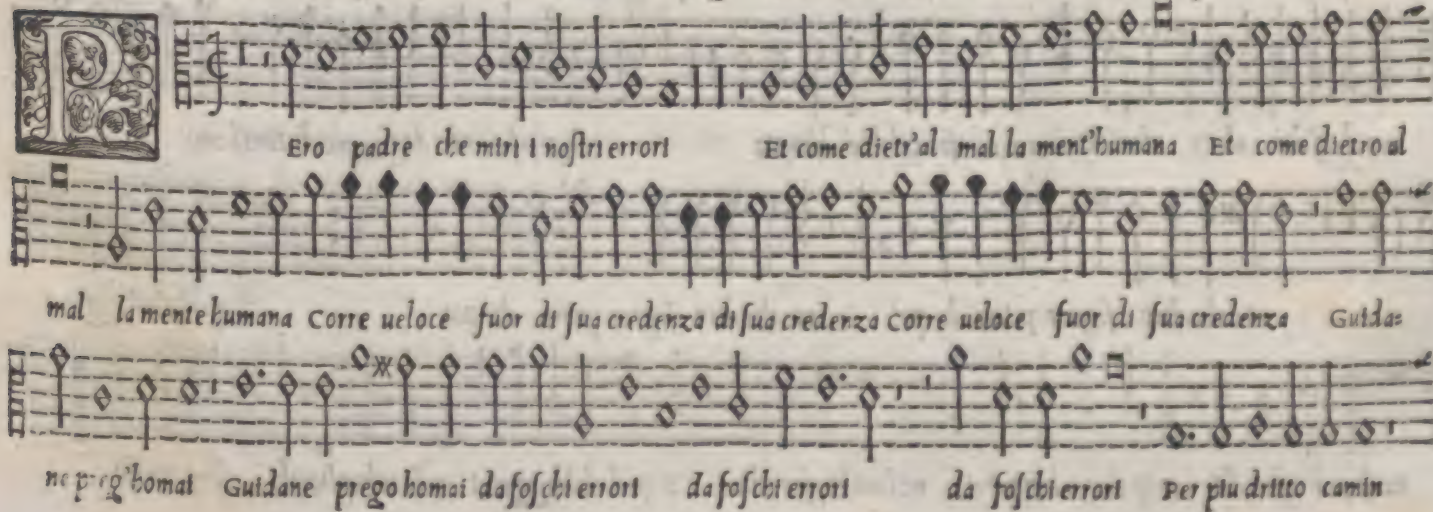 PEro padre che miri i noſtri errori Et come dietr'al mal la ment'humana Et come dietro al
mal la mente humana Corre ueloce fuor di ſua credenza di ſua credenza Corre ueloce fuor di ſua credenza Guida=
ne preg'homai Guidane prego homai da foſchi errori da foſchi errori da foſchi errori Per piu dritto camin